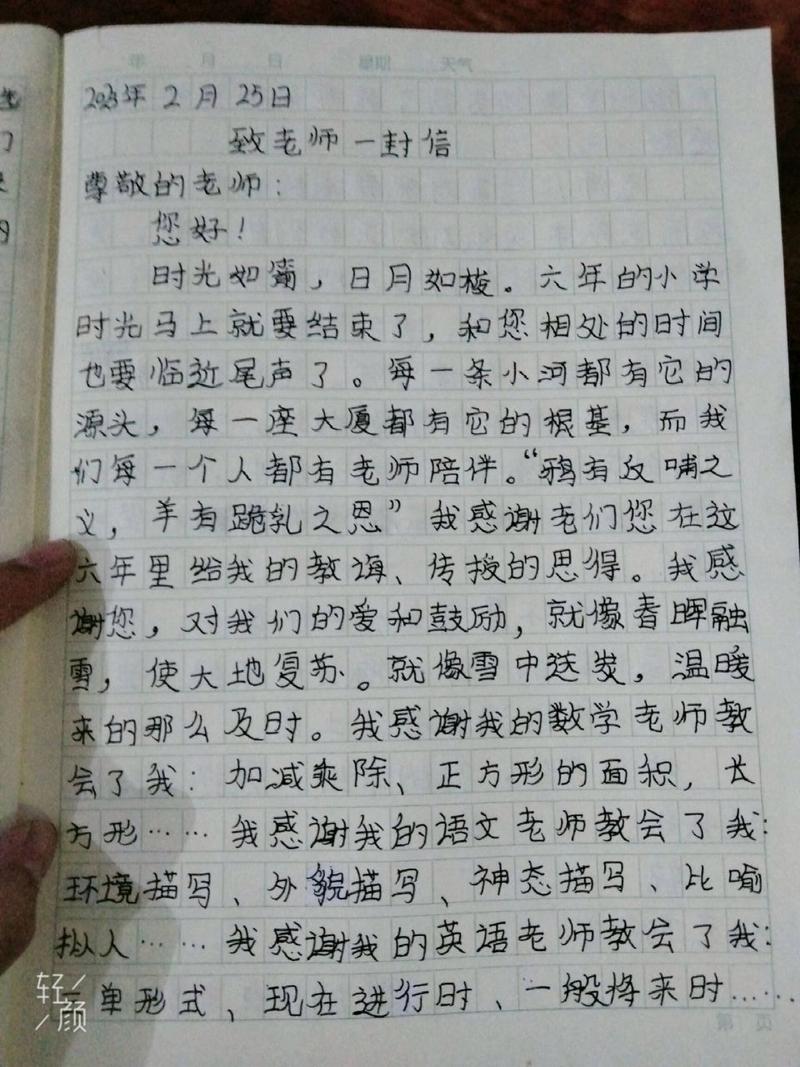 年 月 日 星期 天气
2023年 2月 25日
致老师一封信
尊敬的老师：
您好！
时光如箭，日月如梭。六年的小学
时光马上就要结束了，和您相处的时间
也要临近尾声了。每一条小河都有它的
源头，每一座大厦都有它的根基，而我
们每一个人都有老师陪伴。“鸦有反哺之
义，羊有跪乳之恩”我感谢老们您在这
六年里给我的教诲、传授的思得。我感
谢您，对我们的爱和鼓励，就像春晖融
雪，使大地复苏。就像雪中送炭，温暖
来的那么及时。我感谢我的数学老师教
会了我：加减乘除、正方形的面积，长
方形……我感谢我的语文老师教会了我：
环境描写、外貌描写、神态描写、比喻
拟人……我感谢我的英语老师教会了我：
单形式、现在进行时、一般将来时……
第 页
轻
颜